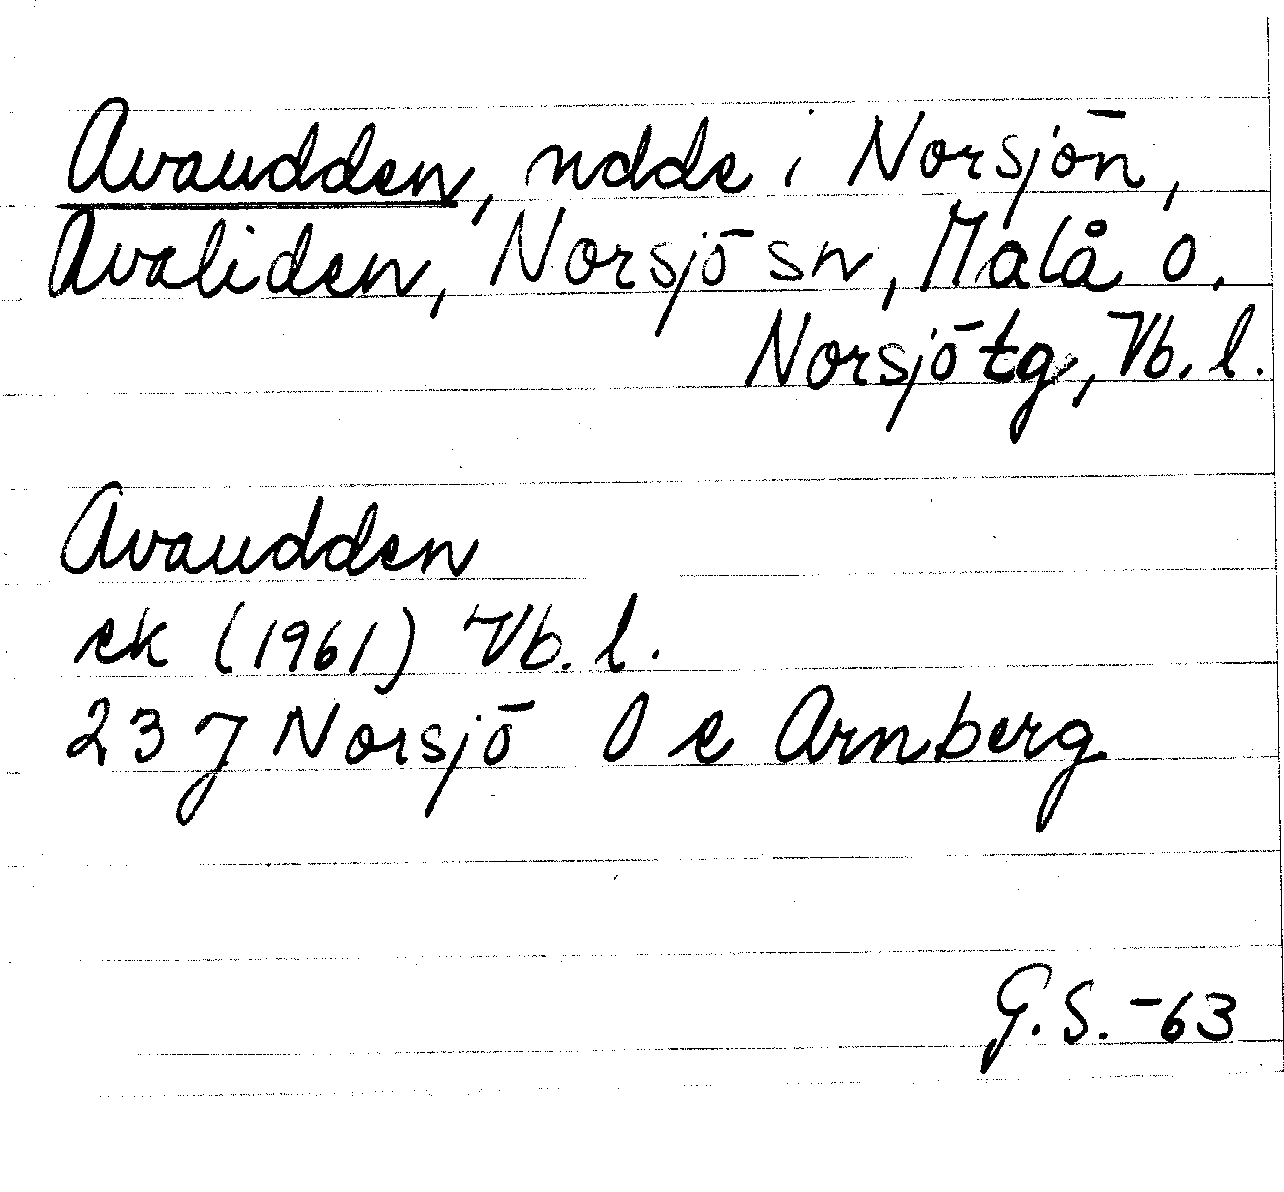 Avaudden, udde i Norsjön,
Avaliden, Norsjö sn, Malå o.
Norsjö tg, Vb. l.
Avaudden
ek (1961) Vb. l.
23 J Norsjö O e Arnberg
G.S. -63